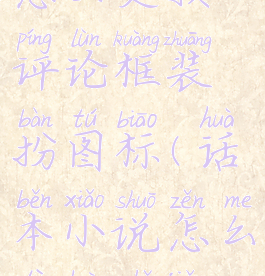 píng lùn kuàng zhuāng
评论框装
bàn tú biāo huà
扮图标(话
běn xiǎo shuō zěn me
本小说怎么